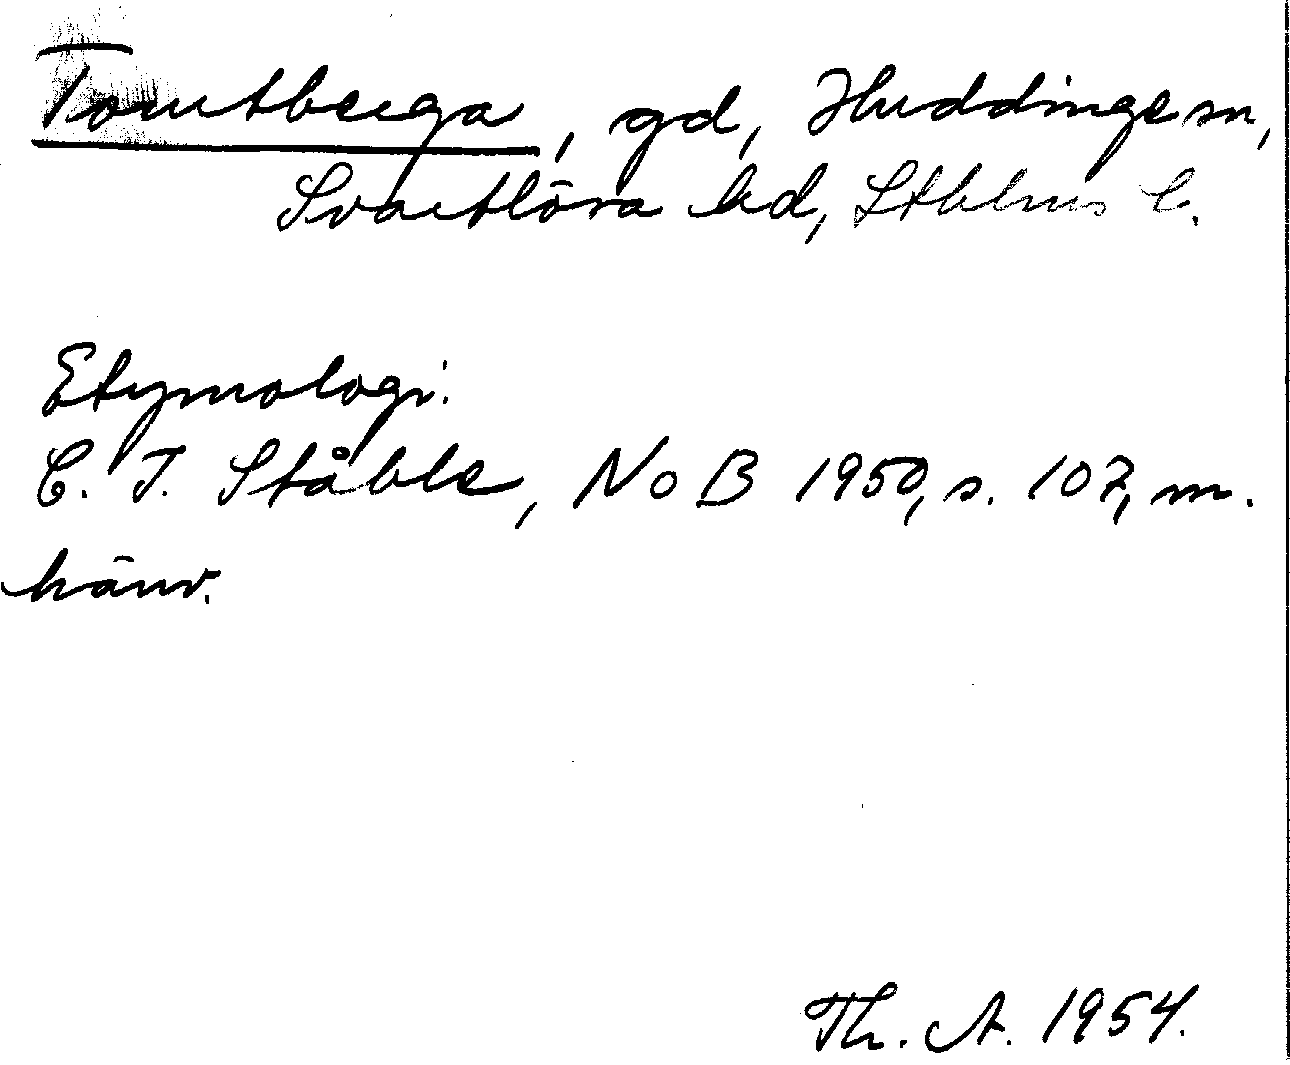 Tomtberga, gd, Huddinge sn,
Svartlösa hd, Sthlms l.
Etymologi:
C. I. Ståhle, NoB 1950, s. 107, m.
hänv.
Th. A. 1954.